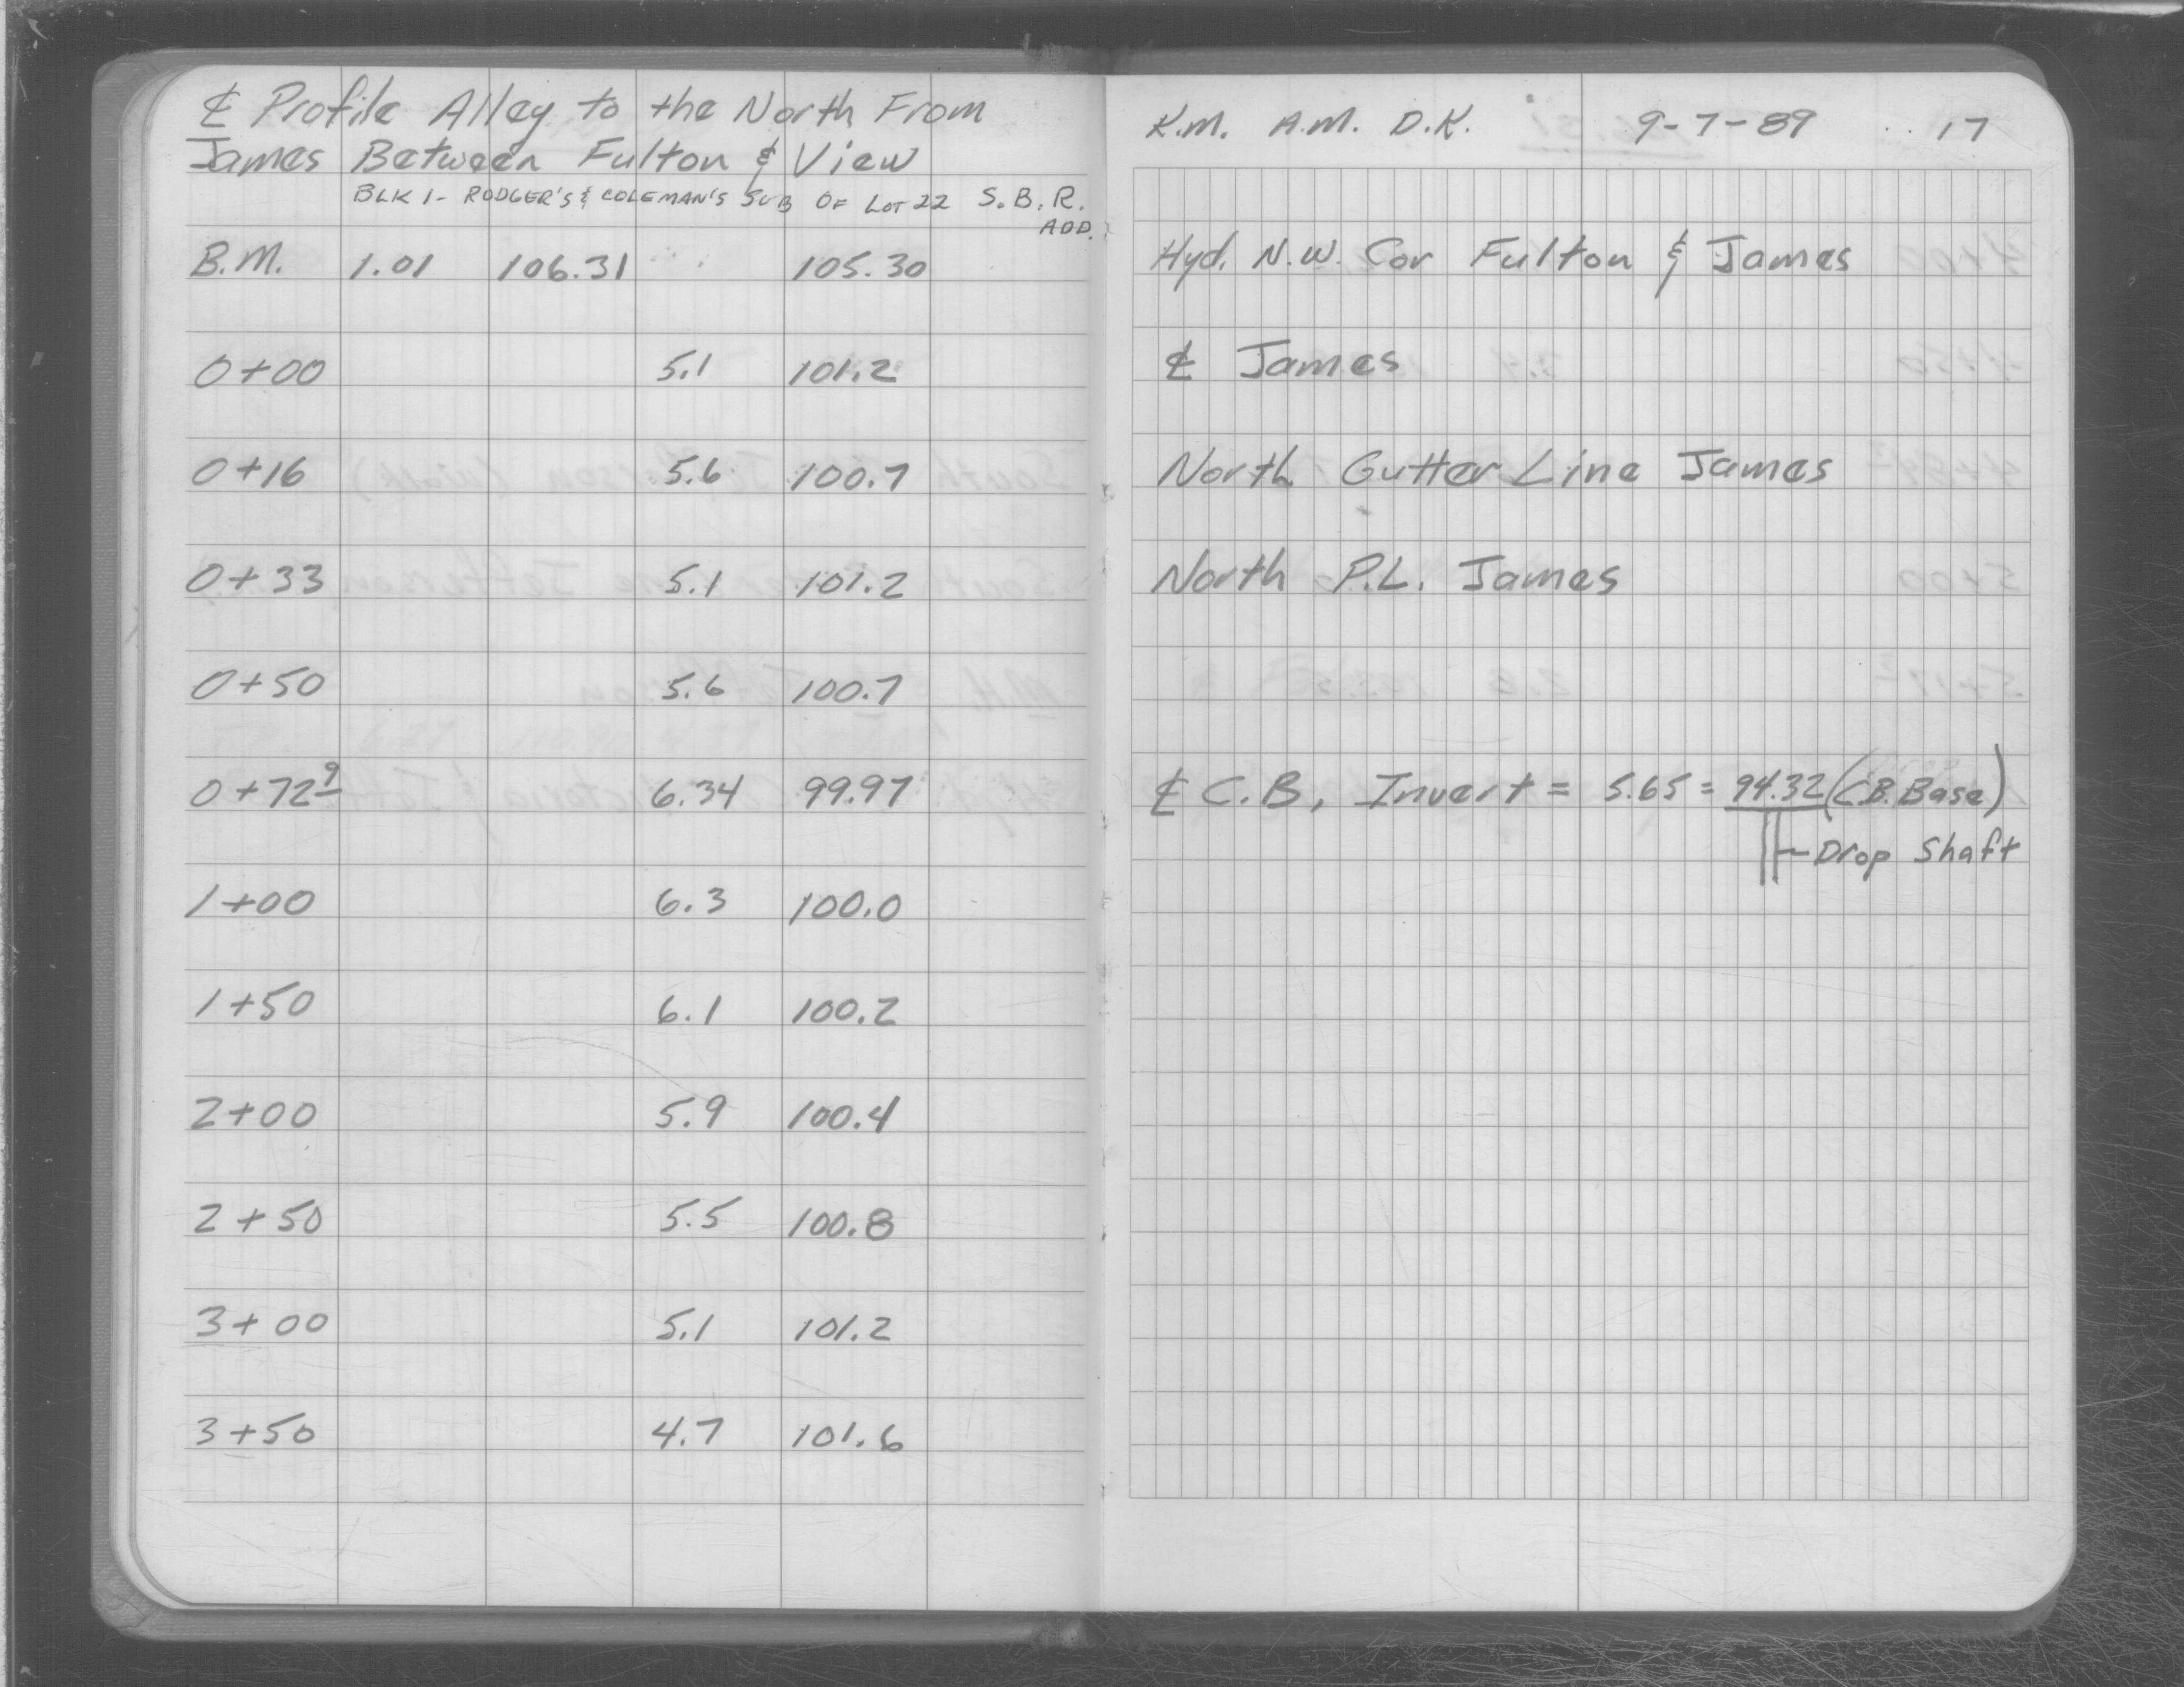 ℄ Profile Alley to the North From
James Between Fulton & View
BLK 1 - RODGER'S & COLEMAN'S SUB OF LOT 22 S.B.R.
ADD.
B.M. 1.01 106.31 105.30
0+00 5.1 101.2
0+16 5.6 100.7
0+33 5.1 101.2
0+50 5.6 100.7
0+72⁹ 6.34 99.97
1+00 6.3 100.0
1+50 6.1 100.2
2+00 5.9 100.4
2+50 5.5 100.8
3+00 5.1 101.2
3+50 4.7 101.6
K.M. A.M. D.K. 9-7-89 17
Hyd. N.W. Cor Fulton & James
℄ James
North Gutter Line James
North P.L. James
℄ C.B, Invert = 5.65 = 94.32 (C.B. Base)
Drop Shaft